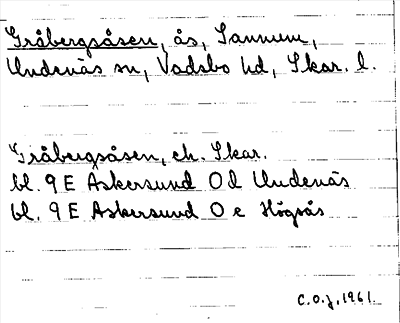 Gråbergsåsen, ås, Sannum,
Undenäs sn, Vadsbo hd, Skar. l.
Gråbergsåsen, ek. Skar.
bl. 9 E Askersund O d Undenäs
bl. 9 E Askersund O e Högsås
C.O.J, 1961.